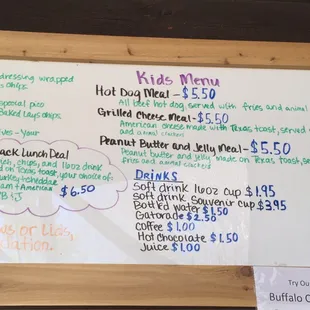 Kids Menu
dressing wrapped
Chips
Hot Dog Meal - $5.50
All beef hot dog, served with fries and animal
special pico
Baked Lays chips
Grilled Cheese Meal - $5.50
American cheese made with Texas toast, served
and animal crackers
ves - Your
Peanut Butter and Jelly Meal - $5.50
Peanut butter and jelly made on Texas toast, se
fries and animal crackers
ack Lunch Deal
ich, chips, and 16oz drink
on Texas toast, your choice of
turkey + cheddar
am + American
B & J
$6.50
DRINKS
Soft drink 16oz cup $1.95
Soft drink souvenir cup $3.95
Bottled water $1.50
Gatorade $2.50
Coffee $1.00
Hot Chocolate $1.50
Juice $1.00
us or Lids,
dation.
Try Ou
Buffalo C